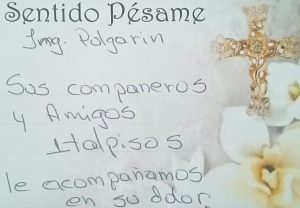 Sentido Pésame
Ing. Pulgarin
Sus compañeros
y Amigos
Italpisos
le acompañamos
en su dolor.